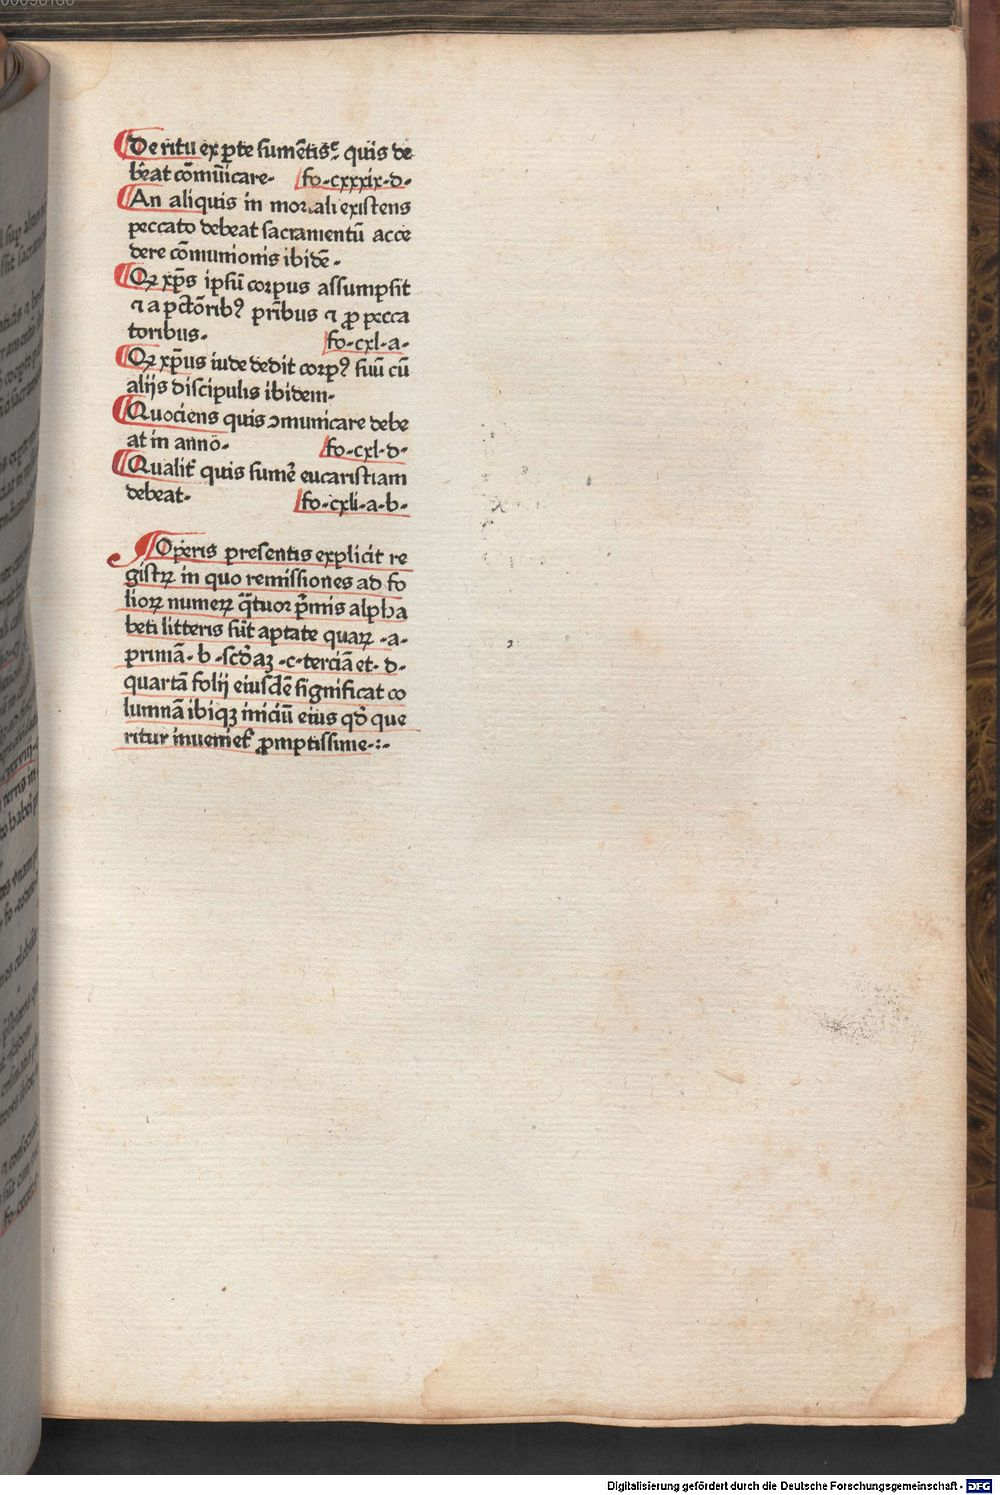 De ritu ex ꝑte sumẽtis: quis de
beat cõmũicare. fo.cxxxix.d.
An aliquis in mortali existens
peccato debeat sacramentũ acce
dere cõmunionis ibidẽ.
Qꝛ xp̃s ipsũ corpus assumpsit
⁊ a pctõribꝰ pribus ⁊ ꝓ pecca
toribus. fo.cxl.a.
Qꝛ xp̃us iude dedit corpꝰ suũ cũ
alijs discipulis ibidem.
Quociens quis ꝯmunicare debe
at in anno. fo.cxl.d.
Qualit̃ quis sumẽ eucaristiam
debeat. fo.cxli.a.b.
Operis presentis explicit re
gistꝝ in quo remissiones ad fo
lioꝝ numeꝝ q̃tuor p̃mis alpha
beti litteris sũt aptate quaꝝ .a.
primã. b .scd̃aꝫ .c.terciã et. d.
quartã folij eiusdẽ significat co
lumnã ibiqꝫ iniciũ eius qd̃ que
ritur inueniet̃ ꝓmptissime.:.
Digitalisierung gefördert durch die Deutsche Forschungsgemeinschaft - DFG